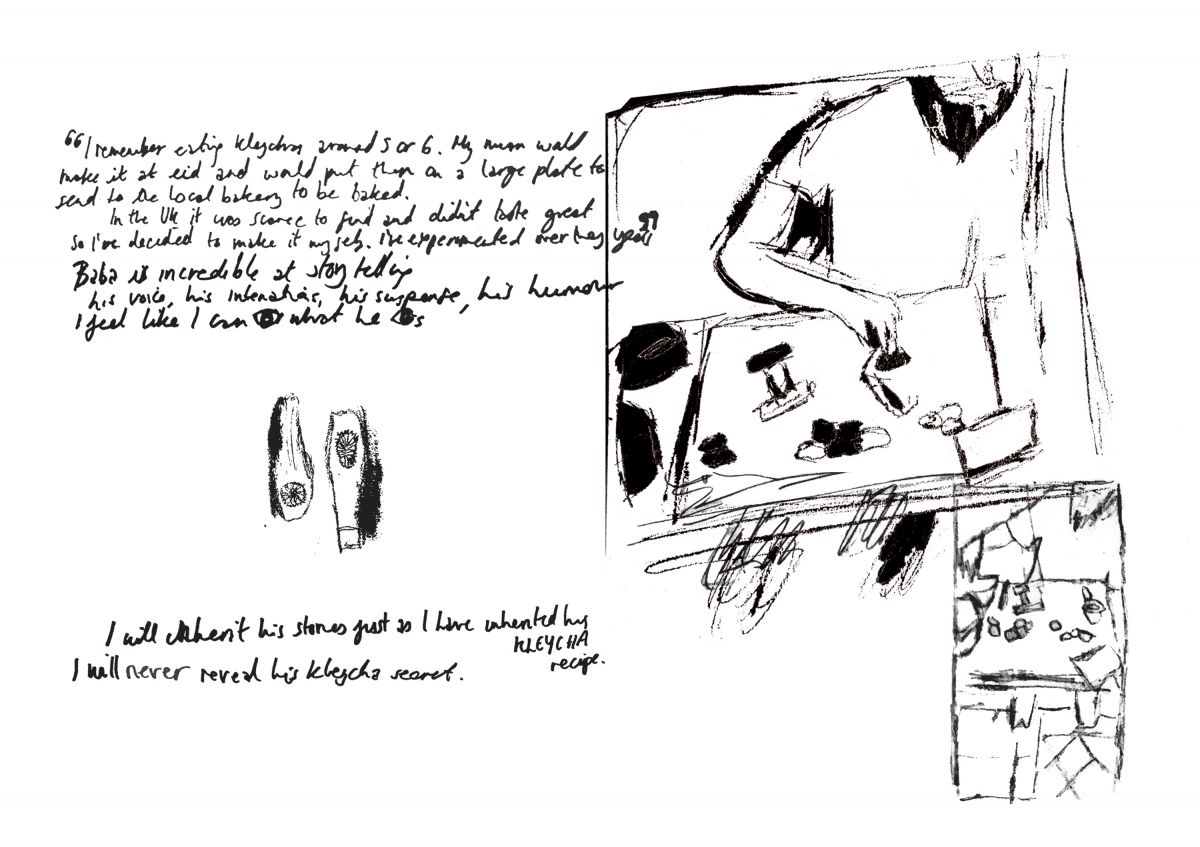 “I remember eating kleycha around 5 or 6. My mum would
make it at eid and would put them on a large plate to
send to the local bakery to be baked.
In the UK it was scarce to find and didn't taste great
so I've decided to make it myself. I've experimented over the years”
Baba is incredible at story telling
his voice, his intonations, his suspense, his humour
I feel like I can what he
I will inherit his stories just as I have inherited his
KLEYCHA
recipe.
I will never reveal his kleycha secret.